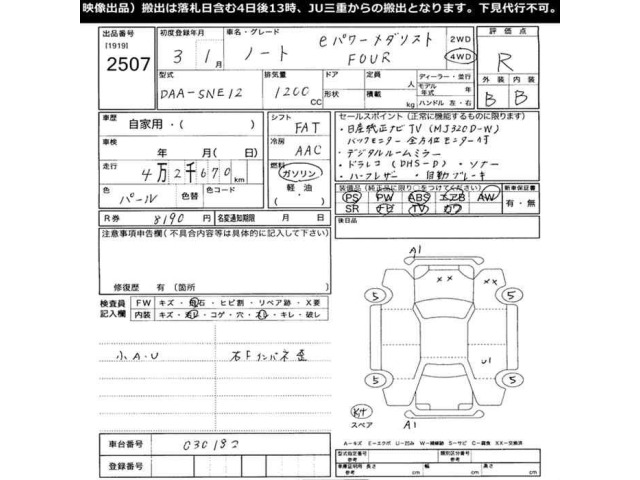 映像出品）搬出は落札日含む4日後13時、JU三重からの搬出となります。下見代行不可。
出品番号
[1919]
2507
初度登録年月
3 年 1 月
車名・グレード
ノート eパワーメダリスト FOUR
2WD
4WD
評価点
R
型式
DAA-SNE12
排気量
1200 CC
ドア
形状
定員 人
積載 kg
ディーラー・並行
モデル年式 年
ハンドル 左・右
外装 内装
B B
車歴
自家用・( )
車検
年 月( )
走行
4万2千670 km
色
パール
色替
色コード
シフト
FAT
冷房
AAC
燃料
ガソリン
軽油
・( )
R券
8190 円
名変通知期限 月 日
セールスポイント（正常に機能するものに限ります）
・日産純正ナビTV (MJ320D-W)
バックモニター 全方位モニター付
・デジタルルームミラー
・ドラレコ (DH5-D) ・ソナー
・ハーフレザー ・自動ブレーキ
装備品（純正品に限り○をつけてください）
PS PW ABS エアB AW
SR ナビ TV カワ
新車保証書
有・無
後日品
注意事項申告欄（不具合内容等は具体的に記入して下さい）
修復歴 有（箇所 ）
検査員記入欄
FW キズ・飛石・ヒビ割・リペア跡・X要
内装 キズ・汚レ・コゲ・穴・スレ・キレ・破レ
小A・U
右Fインパネ歪
A1
××
××
5
5
U1
5
5
スペア
A1
A－キズ E－エクボ U－凹み W－補修跡 S－サビ C－腐食 XX－交換済
車台番号
030182
登録番号
型式指定番号
参考
類別区分番号
参考
車庫証明用
参考
長さ cm
幅 cm
高さ cm